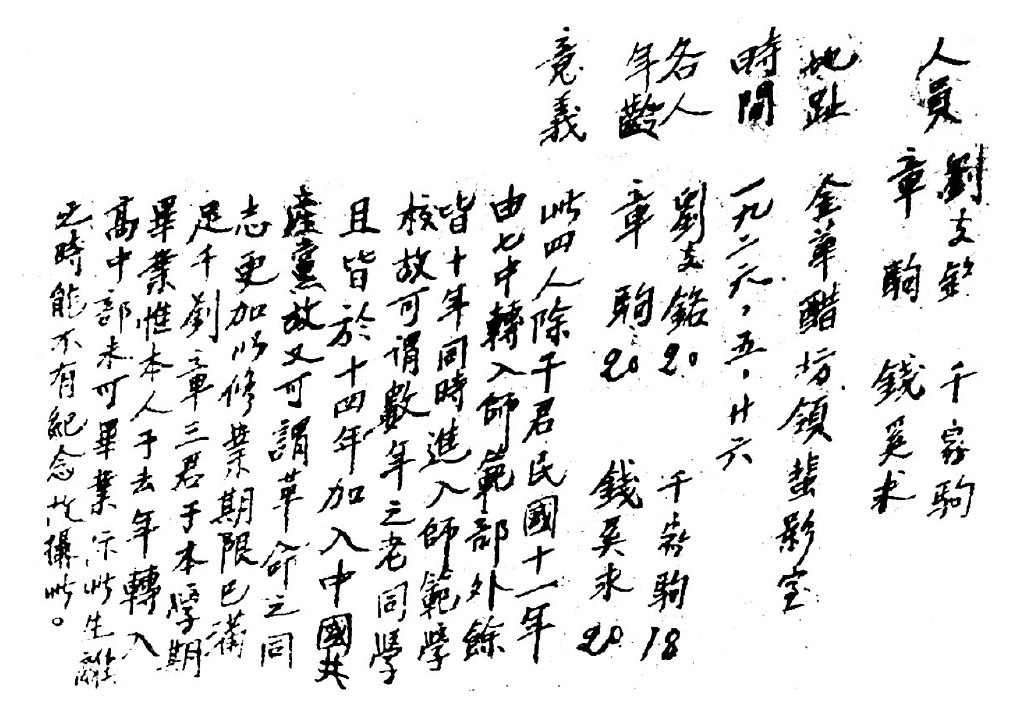 人員 劉支鉞 千家駒
章駒 錢奚求
地趾 金華醋坊領蜚影室
時間 一九二六、五、廿六
各人年齡 劉支銘20 千家駒18
章駒20 錢奚求20
意義 此四人除千君民國十一年
由七中轉入師範部外餘
皆十年同時進入師範學
校故可謂數年之老同學
且皆於十四年加入中國共
產黨故又可謂革命之同
志更加以修業期限已滿
足千劉章三君于本學期
畢業惟本人于去年轉入
高中部未可畢業 此生離
之時能不有紀念故攝此。